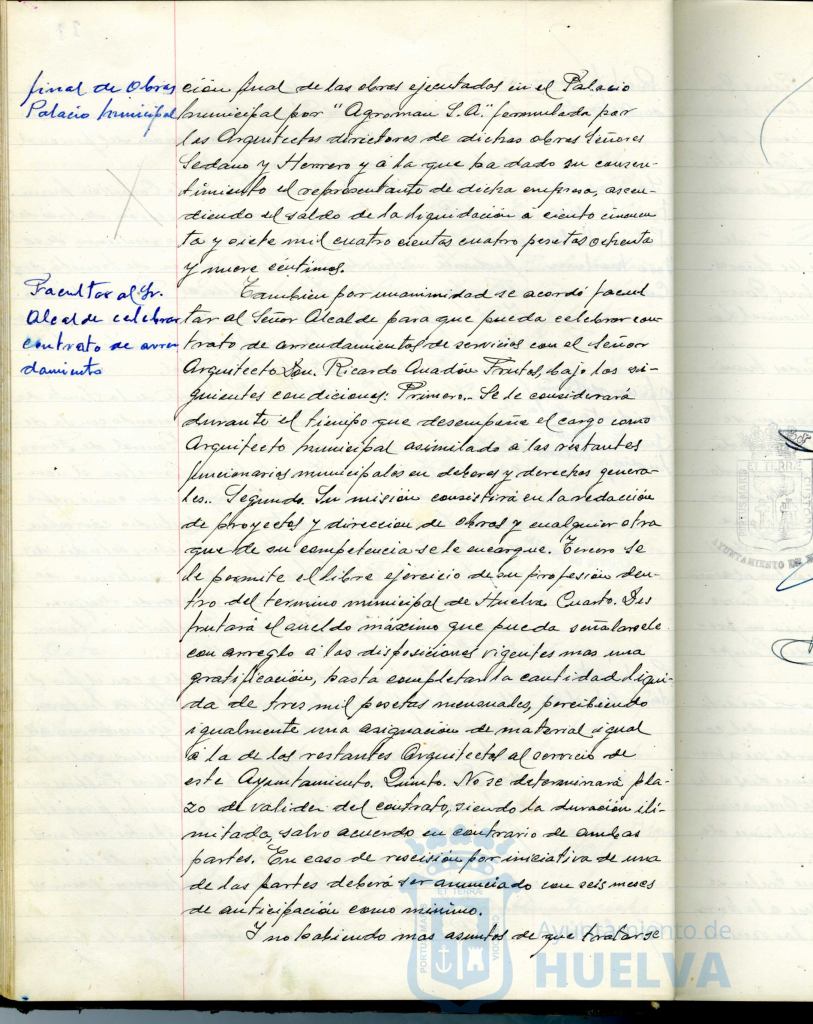 final de Obras
Palacio Municipal
ción final de las obras ejecutadas en el Palacio
Municipal por "Agroman S.A." formulada por
los Arquitectos directores de dichas obras Señores
Sedano y Herrero y a la que ha dado su consen-
timiento el representante de dicha empresa, ascen-
diendo el saldo de la liquidación a ciento cincuen
ta y siete mil cuatro cientas cuatro pesetas ochenta
y nueve céntimos.
Facultar al Sr.
Alcalde celebrar
contrato de arren
damiento
Tambien por unanimidad se acordó facul
tar al Señor Alcalde para que pueda celebrar con-
trato de arrendamientos de servicios con el Señor
Arquitecto Don. Ricardo Anadón Frutos, bajo las si-
guientes condiciones: Primero.- Se le considerará
durante el tiempo que desempeñe el cargo como
Arquitecto Municipal asimilado a los restantes
funcionarios municipales en deberes y derechos genera-
les.. Segundo. Su misión consistirá en la redacción
de proyectos y direccion de obras y cualquier otra
que de su competencia se le encargue. Tercero se
le permite el libre ejercicio de su profesión den-
tro del termino municipal de Huelva. Cuarto. Dis
frutará el sueldo máximo que pueda señalarsele
con arreglo a las disposiciones vigentes mas una
gratificación, hasta completar la cantidad líqui-
da de tres mil pesetas mensuales, percibiendo
igualmente una asignación de material igual
a la de los restantes Arquitectos al servicio de
este Ayuntamiento. Quinto. No se determinará pla-
zo de validez del contrato, siendo la duración ili-
mitada, salvo acuerdo en contrario de ambas
partes. En caso de rescisión por iniciativa de una
de las partes deberá ser anunciado con seis meses
de anticipación como mínimo.
Y no habiendo mas asuntos de que tratarse
Ayuntamiento de
HUELVA